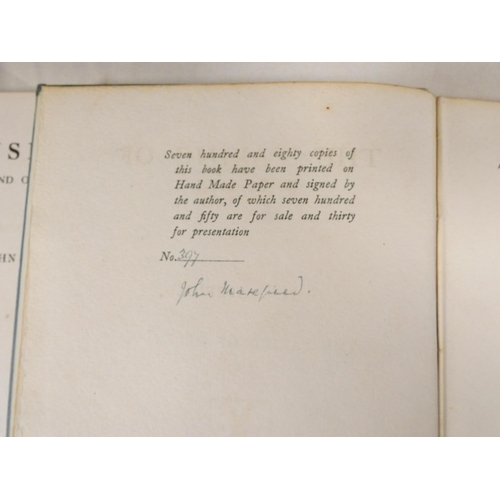 Seven hundred and eighty copies of
this book have been printed on
Hand Made Paper and signed by
the author, of which seven hundred
and fifty are for sale and thirty
for presentation
No. 397
John Masefield.
ND
HN